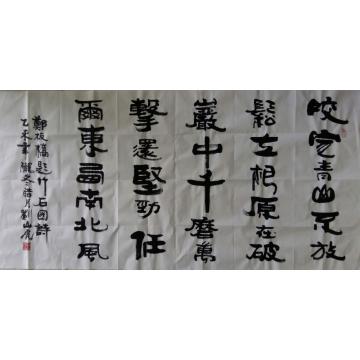 咬定青山不放
鬆立根原在破
巖中千磨萬
擊還堅勁任
爾東西南北風
鄭板橋題竹石圖詩
乙未年臘冬皓月劉山